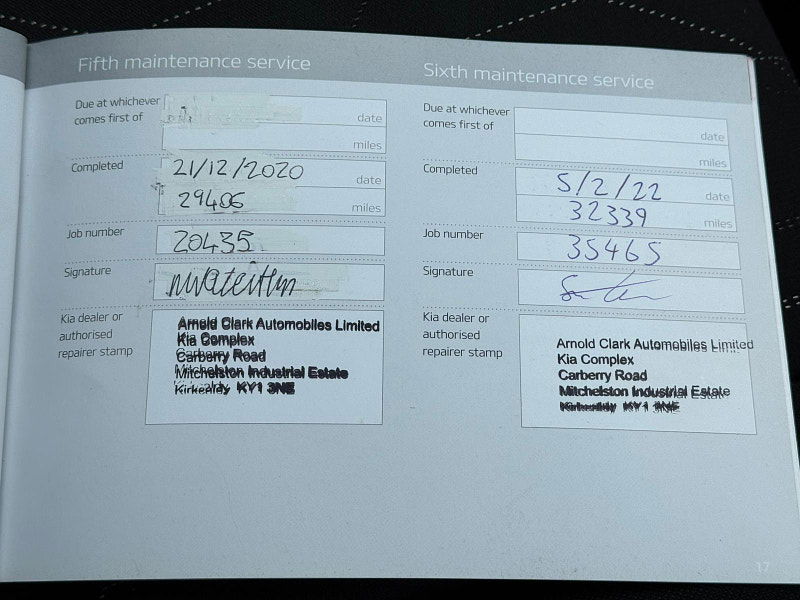 Fifth maintenance service
Due at whichever
comes first of
date
miles
Completed
21/12/2020 date
29406 miles
Job number
20435
Signature
Kia dealer or
authorised
repairer stamp
Arnold Clark Automobiles Limited
Kia Complex
Carberry Road
Mitchelston Industrial Estate
Kirkcaldy KY1 3NE
Sixth maintenance service
Due at whichever
comes first of
date
miles
Completed
5/2/22 date
32339 miles
Job number
35465
Signature
Kia dealer or
authorised
repairer stamp
Arnold Clark Automobiles Limited
Kia Complex
Carberry Road
Mitchelston Industrial Estate
Kirkcaldy KY1 3NE
17